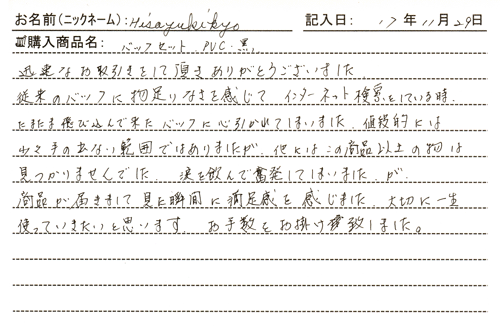 お名前(ニックネーム):Hisayukikyo 記入日: 17年 11月29日
購入商品名: バッフセット PVC・黒
迅速なお取引きをして頂きありがとうございました
従来のバッフに物足りなさを感じて インターネット検索をしている時、
たまたま飛び込んで来たバッフに心引かれてしまいました。値段的には
少々手の出ない範囲ではありましたが、他にはこの商品以上の物は
見つかりませんでした。涙を飲んで奮発してしまいました が、
商品が届きまして見た瞬間に満足感を感じました。大切に一生
使っていきたいと思います。お手数をお掛け致しました。